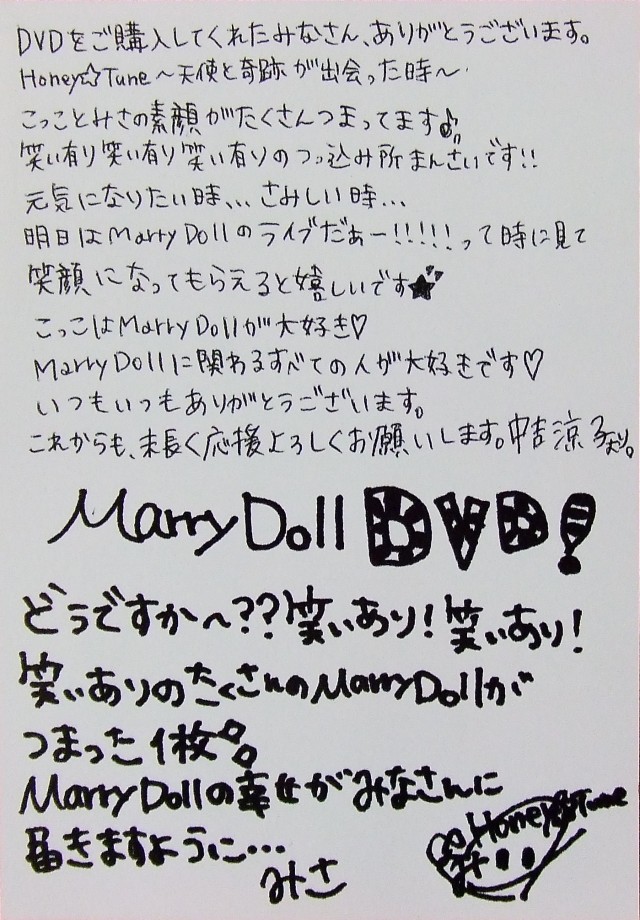 DVDをご購入してくれたみなさん、ありがとうございます。
Honey☆Tune～天使と奇跡が出会った時～
こっことみさの素顔がたくさんつまってます♪
笑い有り笑い有り笑い有りのつっ込み所まんさいです!!
元気になりたい時、、、さみしい時...
明日はMarry Dollのライブだぁー!!!!!って時に見て
笑顔になってもらえると嬉しいです★
こっこはMarry Dollが大好き♡
Marry Dollに関わるすべての人が大好きです♡
いつもいつもありがとうございます。
これからも、末長く応援よろしくお願いします。中吉涼子より。
Marry Doll DVD!
どうですか～??笑いあり!笑いあり!
笑いありのたくさんのMarry Dollが
つまった1枚
Marry Dollの幸せがみなさんに
届きますように…
みさ
Honey☆Tune